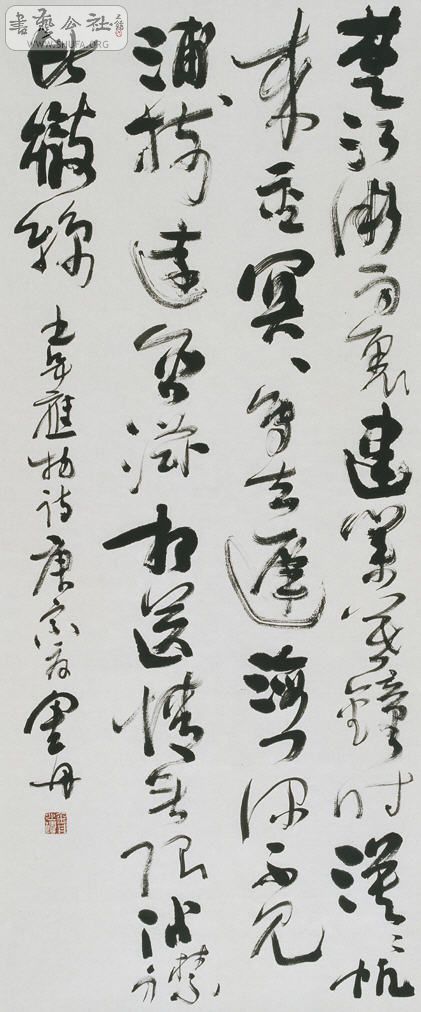 書藝公社
WWW.SHUFA.ORG
楚江微雨裏建業暮鐘時漠〻帆
來重冥〻鳥去遲海門深不見
浦樹遠含滋相送情無限沾襟
比散絲 韋應物詩庚寅